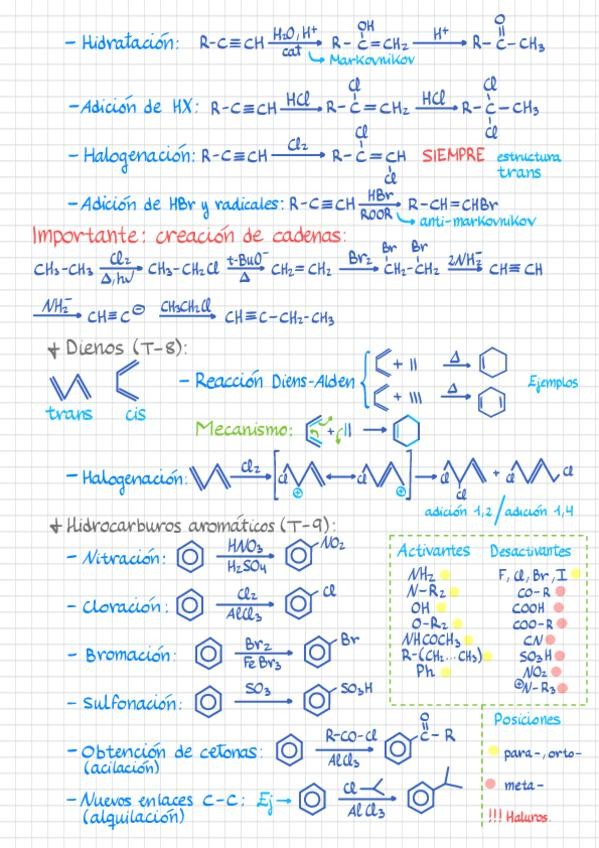 - Hidratación: R-C≡CH H₂O, H⁺ cat R-C(OH)=CH₂ H⁺ R-C(O)-CH₃
Markovnikov
- Adición de HX: R-C≡CH HCl R-C(Cl)=CH₂ HCl R-C(Cl)(Cl)-CH₃
- Halogenación: R-C≡CH Cl₂ R-C(Cl)=CH(Cl) SIEMPRE estructura
trans
- Adición de HBr y radicales: R-C≡CH HBr ROOR R-CH=CHBr
anti-markovnikov
Importante: creación de cadenas:
CH₃-CH₃ Cl₂ Δ,hν CH₃-CH₂Cl t-BuO⁻ Δ CH₂=CH₂ Br₂ CH₂(Br)-CH₂(Br) 2NH₂⁻ CH≡CH
NH₂⁻ CH≡C⊖ CH₃CH₂Cl CH≡C-CH₂-CH₃
+ Dienos (T-8):
trans cis
- Reacción Diens-Alden
+ Δ
+ Δ
Ejemplos
Mecanismo: +
- Halogenación: Cl₂ [Cl ⊕ ↔ Cl ⊕] Cl Cl + Cl Cl
adición 1,2 / adición 1,4
+ Hidrocarburos aromáticos (T-9):
- Nitración: HNO₃ H₂SO₄ NO₂
- Cloración: Cl₂ AlCl₃ Cl
- Bromación: Br₂ FeBr₃ Br
- Sulfonación: SO₃ SO₃H
- Obtención de cetonas: R-CO-Cl AlCl₃ C(O)-R
(acilación)
- Nuevos enlaces C-C: Ej→ Cl AlCl₃
(alquilación)
Activantes Desactivantes
NH₂ F, Cl, Br, I
N-R₂ CO-R
OH COOH
O-R₂ COO-R
NHCOCH₃ CN
R-(CH₂...CH₃) SO₃H
Ph NO₂
⊕N-R₃
Posiciones
para-, orto-
meta-
!!! Haluros